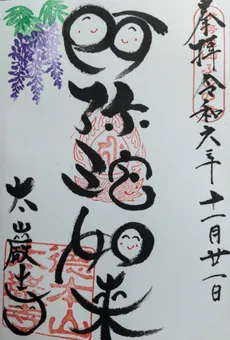 奉拝 令和六年十一月廿一日
阿弥陀如来
太巌寺
徳本山